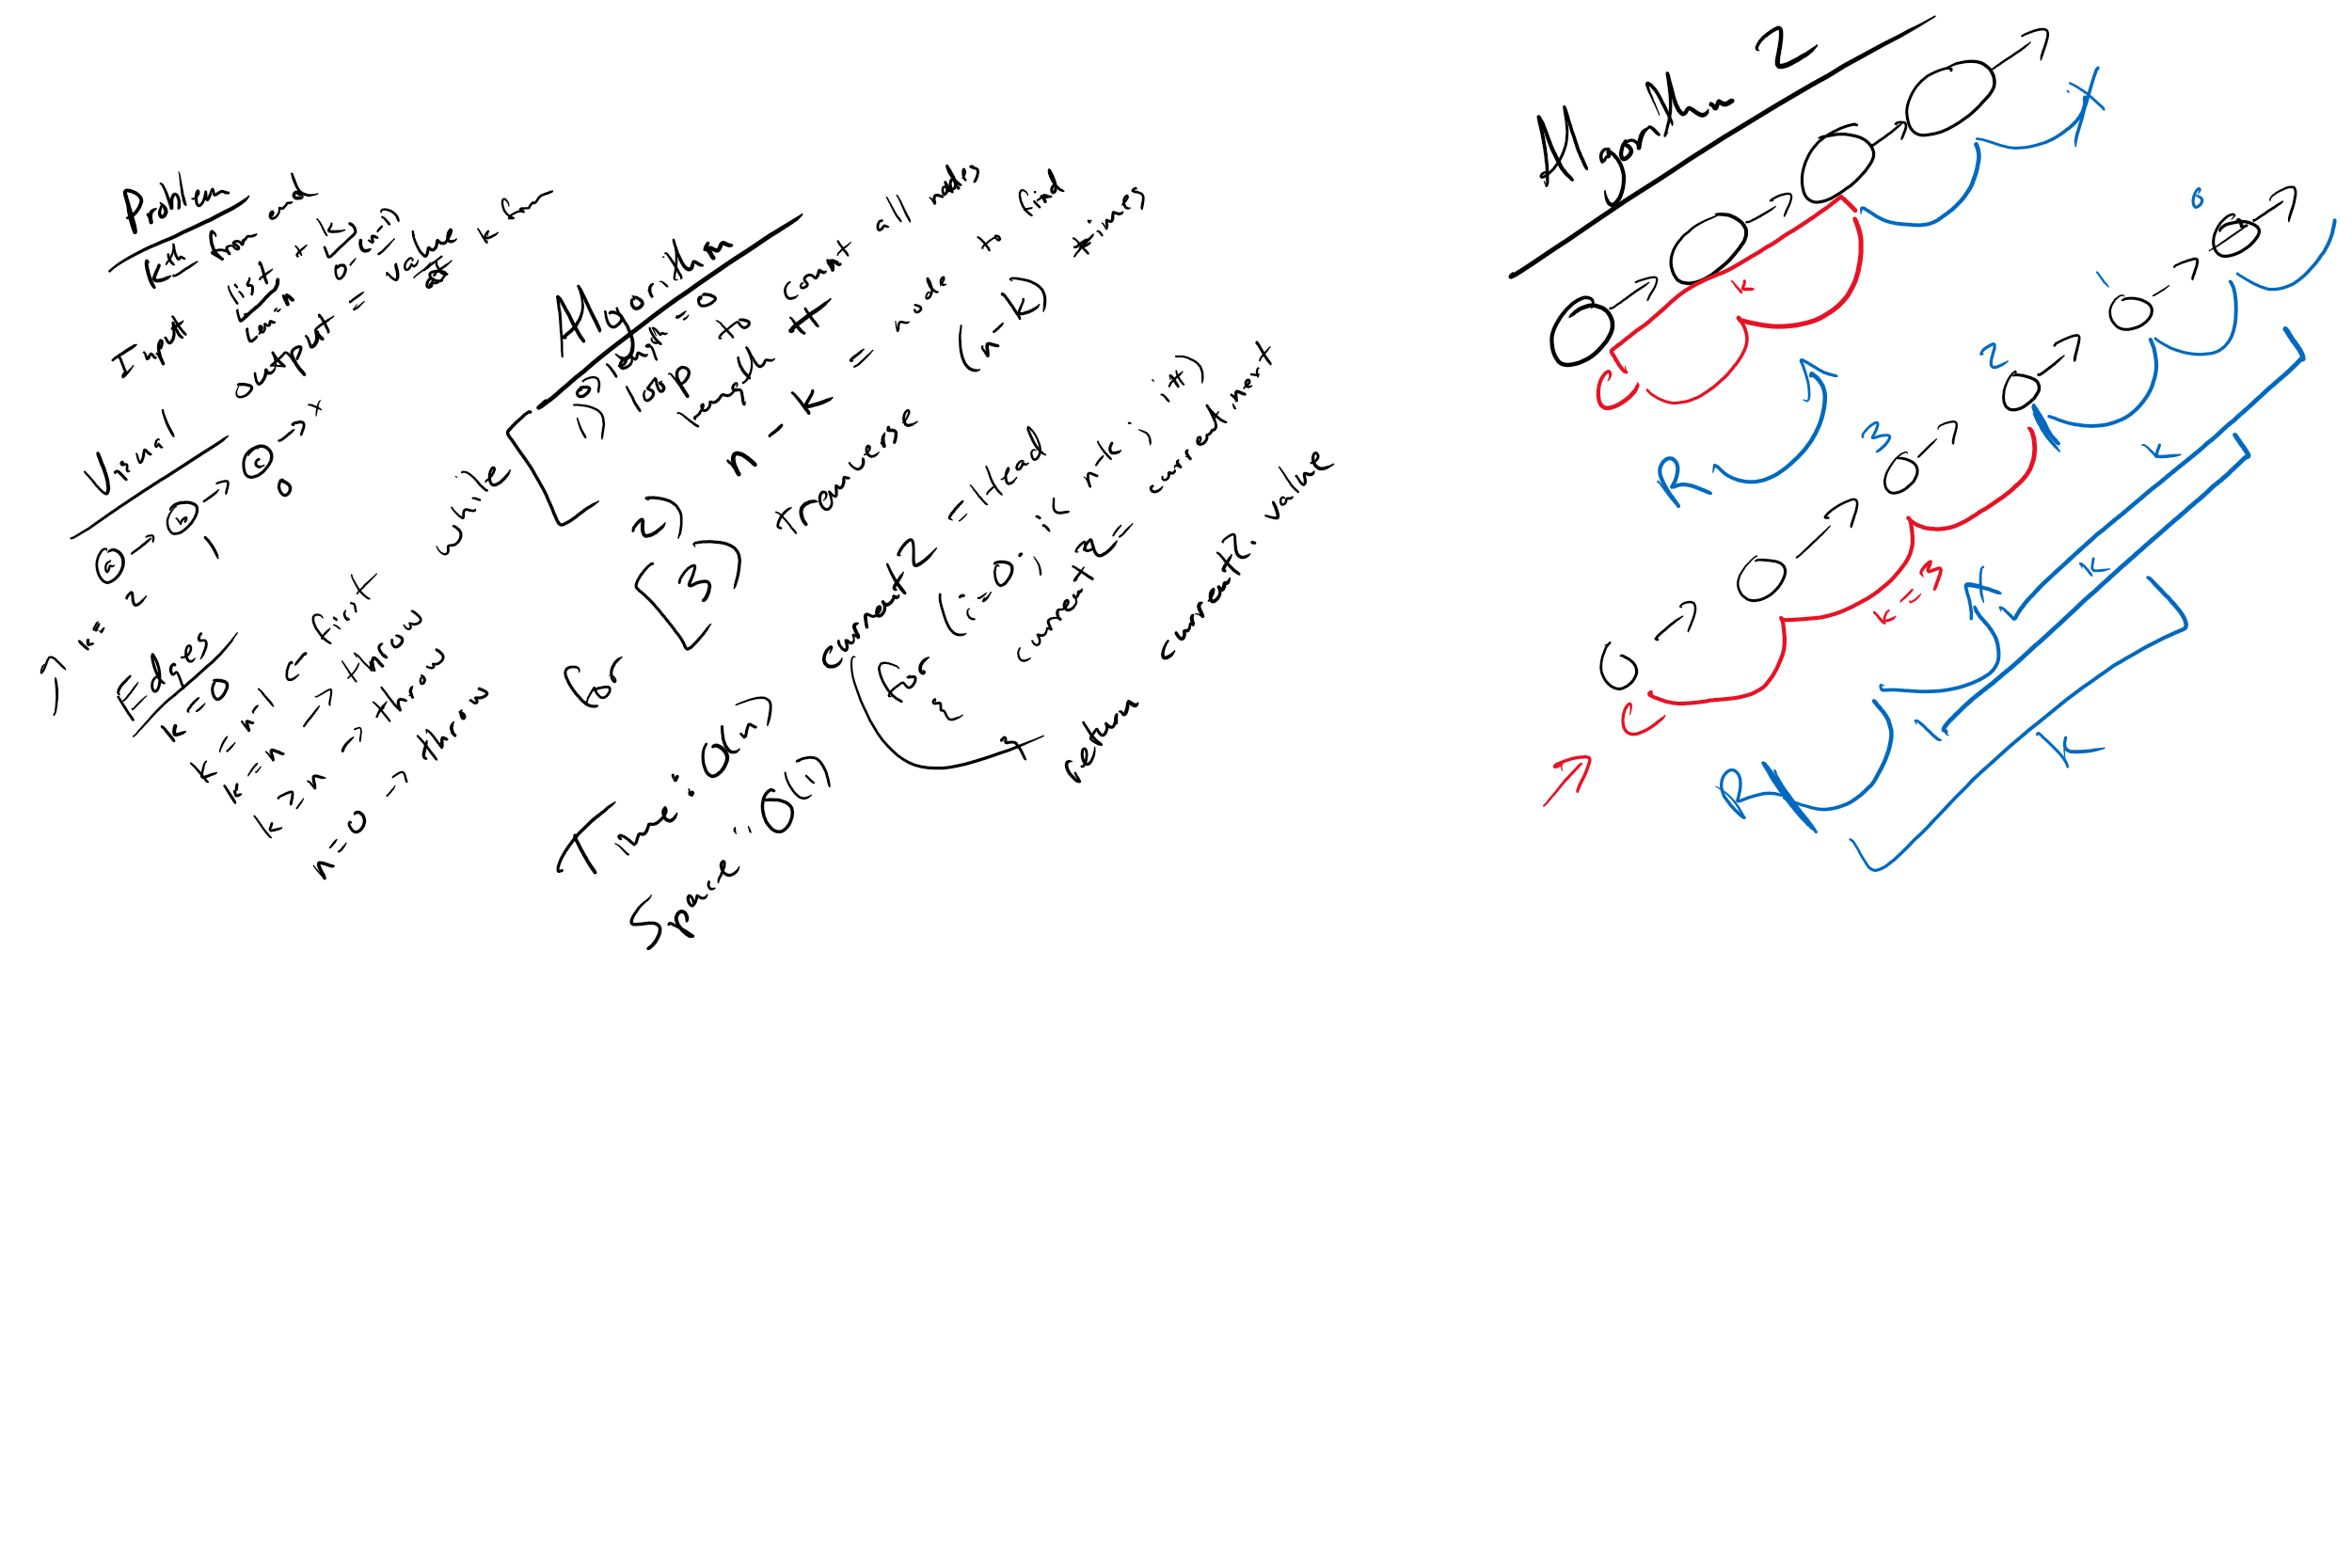 Problem
Kth from end
Input
list + k
Len: 0:(inf)
output = value k from
Visual
1
0
1) k= 2
Edges
k=0
k=n-1 <- first
k=n -> throw
k>n -> throw
n=0 -> throw
while
Algorithm
length=0
1) loop to count all nodes
head
2) n-k = node to find
3) traverse (n-k) times
for
current2 = head
for (i=0; i< n-k; i++)
current2 = current.next
return current2.value
Time: O(n)
Space: O(1)
Algorithm 2
C
k
R
0
1
2
3
C
k=3
R
k
k
k